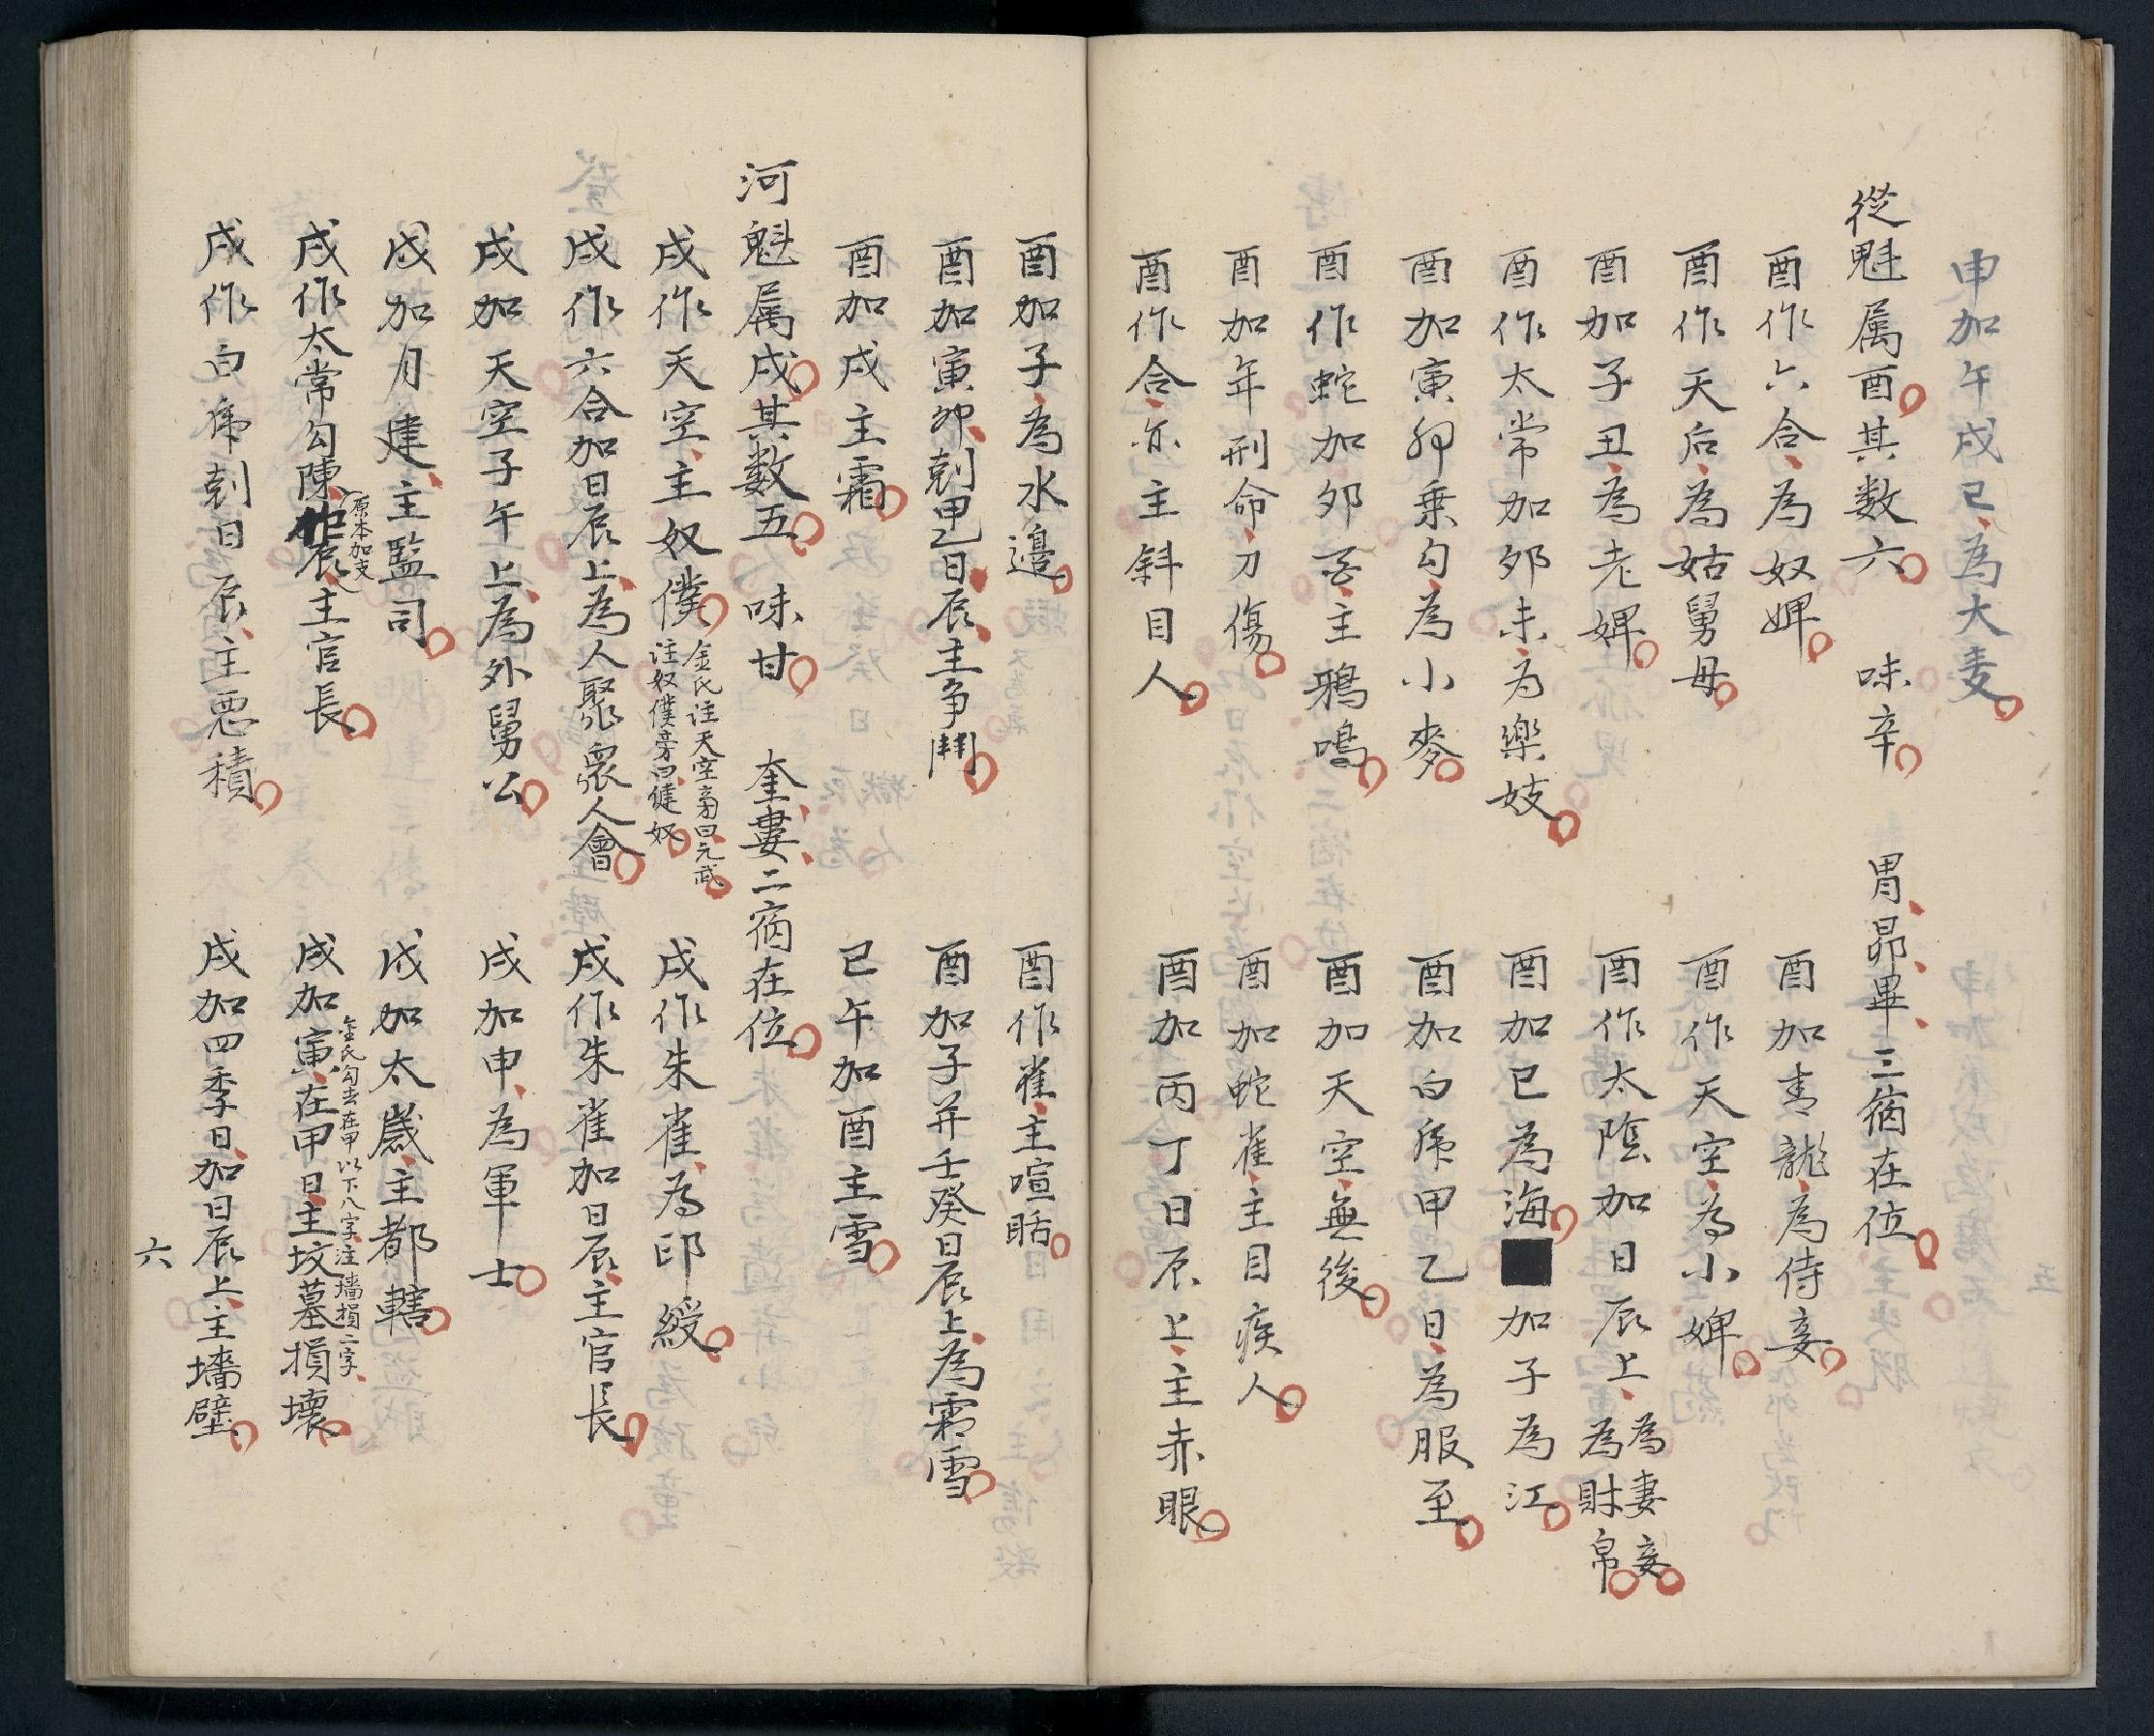 申加午戌巳為大麦
從魁属酉其数六　味辛　胃昴畢三宿在位
酉作六合為奴婢　酉加青龍為侍妾
酉作天后為姑舅母　酉作天空為小婢
酉加子丑為老婢　酉作太陰加日辰上為妻妾為財帛
酉作太常加夘未為樂妓　酉加巳為海■加子為江
酉加寅夘乗勾為小麥　酉加白虎甲乙日為服至
酉作蛇加夘酉主鴉鳴　酉加天空無後
酉加年刑命刀傷　酉加蛇雀主目疾人
酉作合亦主斜目人　酉加丙丁日辰上主赤眼
酉加子為水邉　酉作雀主喧聒
酉加寅夘剋甲乙日辰主争鬪　酉加子并壬癸日辰上為霜雪
酉加戌主霜　巳午加酉主雪
河魁属戌其数五　味甘　奎婁二宿在位
戌作天空主奴僕金氏注天空旁曰元武注奴僕旁曰健奴　戌作朱雀為印綬
戌作六合加日辰上為人聚衆人會　戌作朱雀加日辰主官長
戌加天空子午上為外舅公　戌加申為軍士
戌加月建主監司　戌加太歲主都轄
戌作太常勾陳作辰原本加支主官長　戌加寅在甲日主坟墓損壞金氏勾去在甲以下八字注墻損二字
戌作白虎剋日辰主惡積　戌加四季日加日辰上主墻壁
六